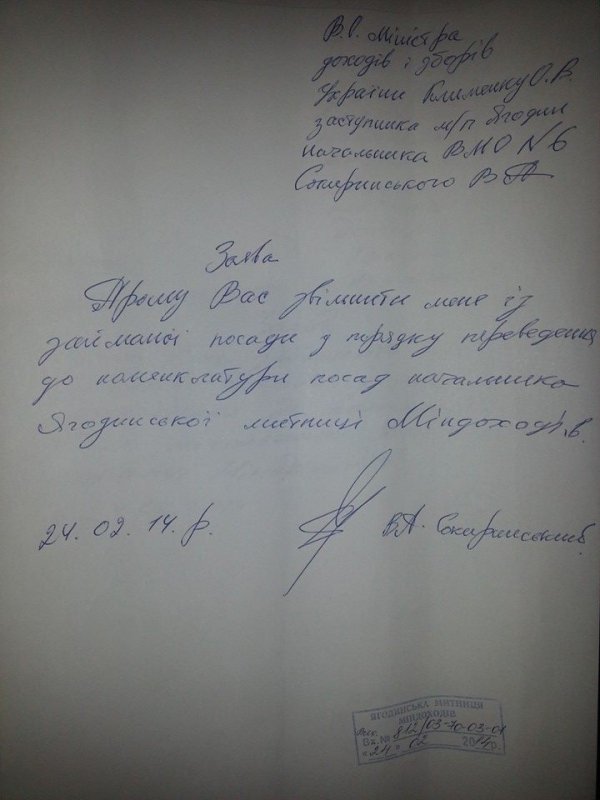 В.О. Міністра
доходів і зборів
України Клименку О.В.
заступника м/п Ягодин
начальника ВМО №6
Сокиринського В.А
Заява
Прошу Вас звільнити мене із
займаної посади у порядку переведення
до номенклатури посад начальника
Ягодинської митниці Міндоходів.
24.02.14.р. В.А. Сокиринський
ЯГОДИНСЬКА МИТНИЦЯ
МІНДОХОДІВ
Вх. № 812/03-70-03-01
"24" 02 2014р.